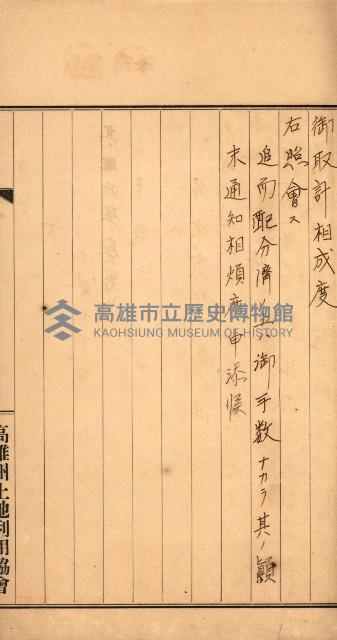 御取計相成度
右照會ス
追而配分濟ノ上ハ御手数ナカラ其ノ顛
末通知相煩度申添候
高雄市立歷史博物館
KAOHSIUNG MUSEUM OF HISTORY
高雄州土地利用協會